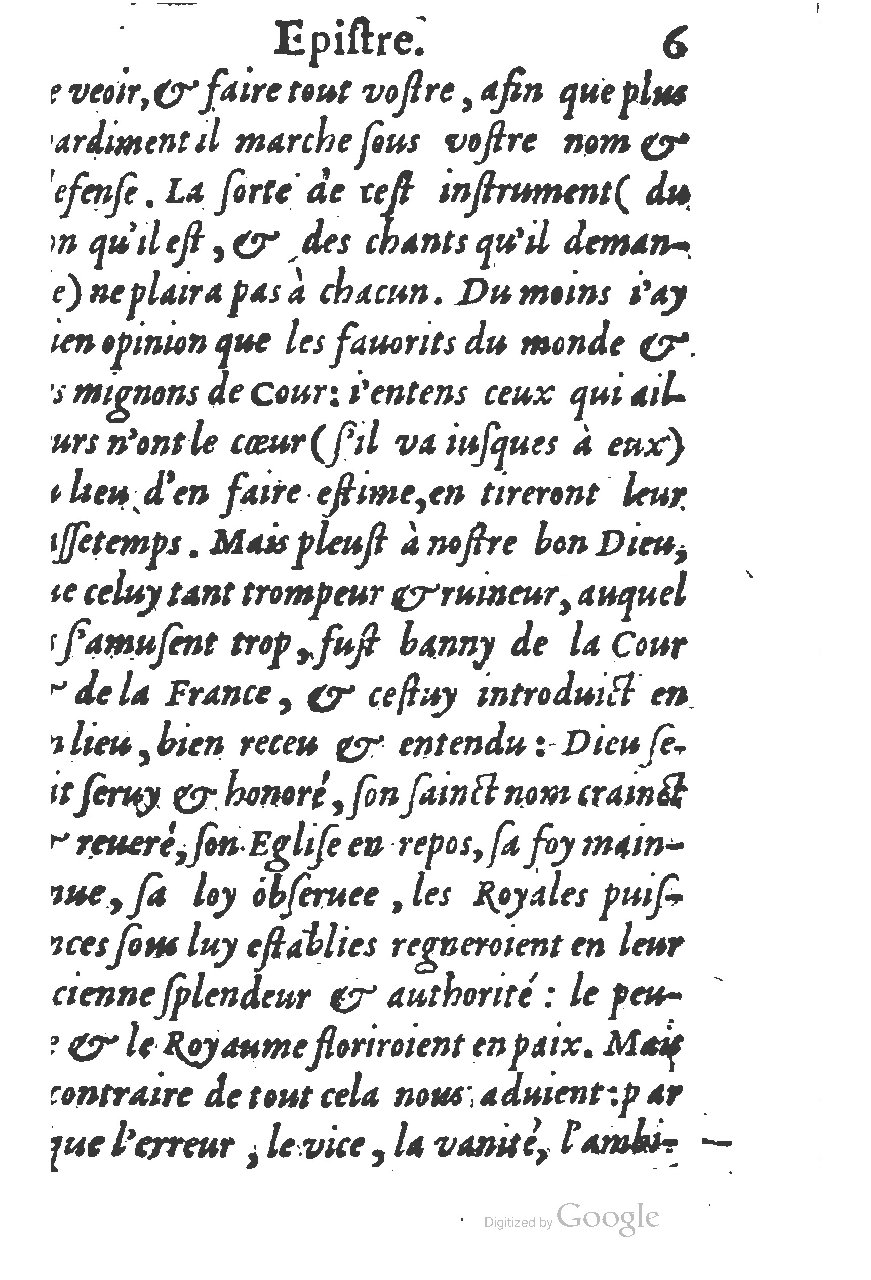 Epiſtre. 6
e veoir, & faire tout voſtre, afin que plus
ardiment il marche ſous voſtre nom &
efenſe. La ſorte de ceſt inſtrument ( du
on qu'il eſt, & des chants qu'il deman-
e) ne plaira pas à chacun. Du moins i'ay
ien opinion que les fauorits du monde &
s mignons de Cour: i'entens ceux qui ail-
urs n'ont le cœur (ſ'il va iuſques à eux)
u lieu d'en faire eſtime, en tireront leur
aſſetemps. Mais pleuſt à noſtre bon Dieu,
ue celuy tant trompeur & ruineur, auquel
s ſ'amuſent trop, fuſt banny de la Cour
& de la France, & ceſtuy introduict en
n lieu, bien receu & entendu: Dieu ſe-
it ſeruy & honoré, ſon ſainct nom crainct
& reueré, ſon Egliſe en repos, ſa foy main-
nue, ſa loy obſeruee, les Royales puiſ-
nces ſous luy eſtablies regneroient en leur
cienne ſplendeur & authorité: le peu-
e & le Royaume floriroient en paix. Mais
contraire de tout cela nous aduient: par
que l'erreur, le vice, la vanité, l'ambi-
Digitized by Google